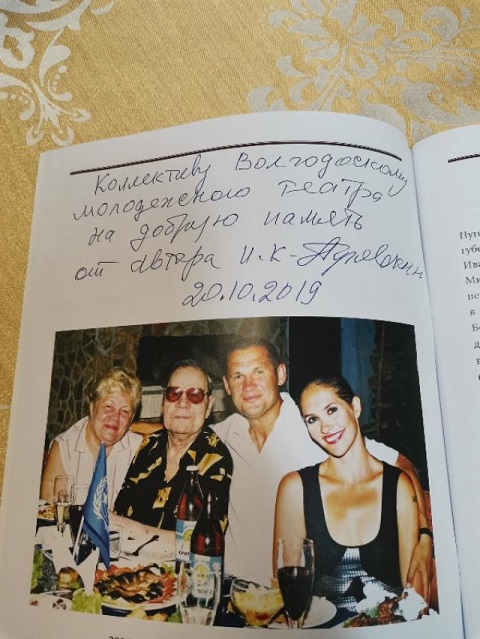 Коллективу Волгодонскому
молодежного театра
на добрую память
от автора И.К-
20.10.2019
Путе
губе
Ива
Ми
не
в
Бо